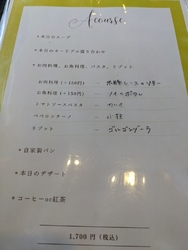 Acousse
＊本日のスープ
＊本日のオードブル盛り合わせ
＊お肉料理、お魚料理、パスタ、リゾット
お肉料理(+100円)
お魚料理(+150円)
トマトソースパスタ
ペペロンチーノ
リゾット ― ゴルゴンゾーラ
＊自家製パン
＊本日のデザート
＊コーヒーor紅茶
1,700円(税込)